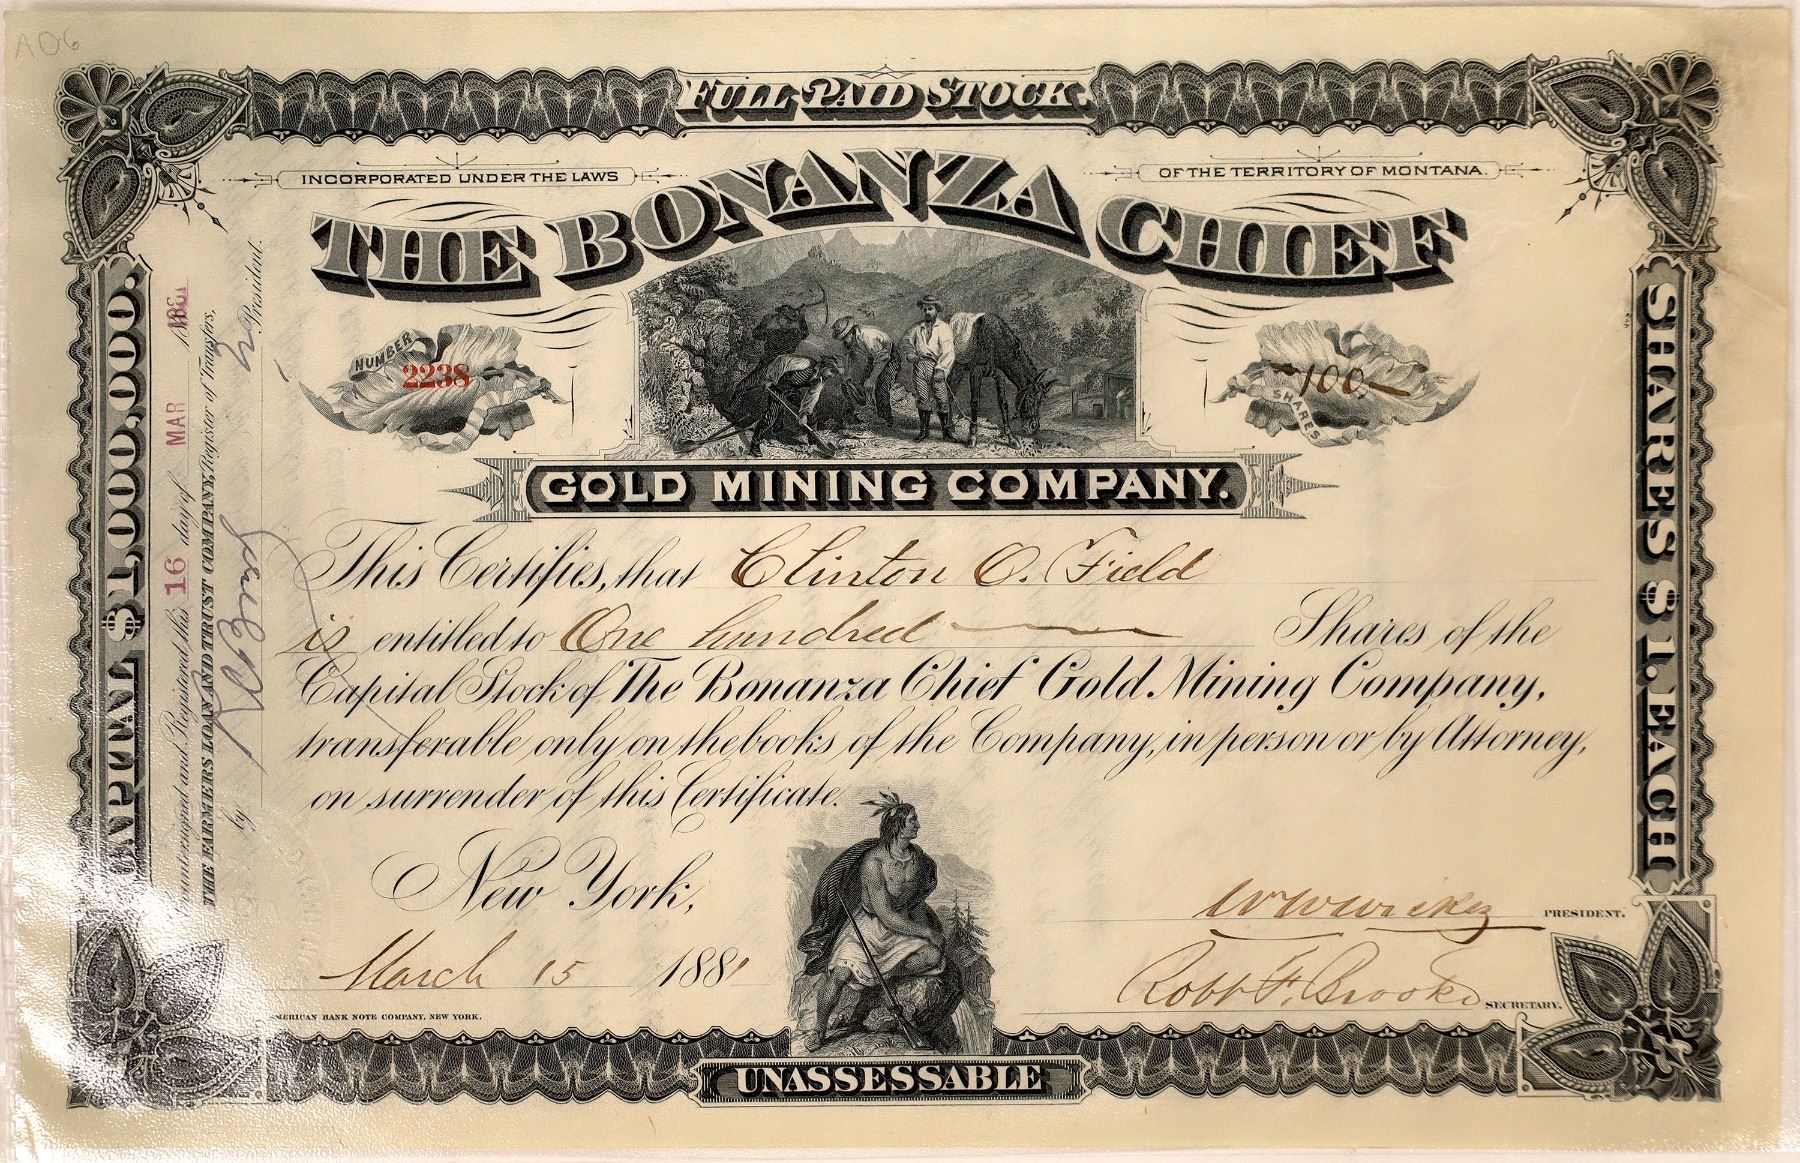 A06
FULL PAID STOCK.
INCORPORATED UNDER THE LAWS
OF THE TERRITORY OF MONTANA.
THE BONANZA CHIEF
NUMBER
2238
100
SHARES
GOLD MINING COMPANY.
This Certifies, that Clinton O. Field
is entitled to One hundred Shares of the
Capital Stock of The Bonanza Chief Gold Mining Company,
transferable only on the books of the Company, in person or by Attorney,
on surrender of this Certificate.
New York,
March 15 1881
PRESIDENT.
Robt F. Brooke
SECRETARY.
AMERICAN BANK NOTE COMPANY, NEW YORK.
UNASSESSABLE
CAPITAL $1,000,000.
SHARES $1. EACH
Countersigned and Registered this 16 day of MAR 1881
THE FARMERS LOAN AND TRUST COMPANY, Registrar of Transfers,
by President.